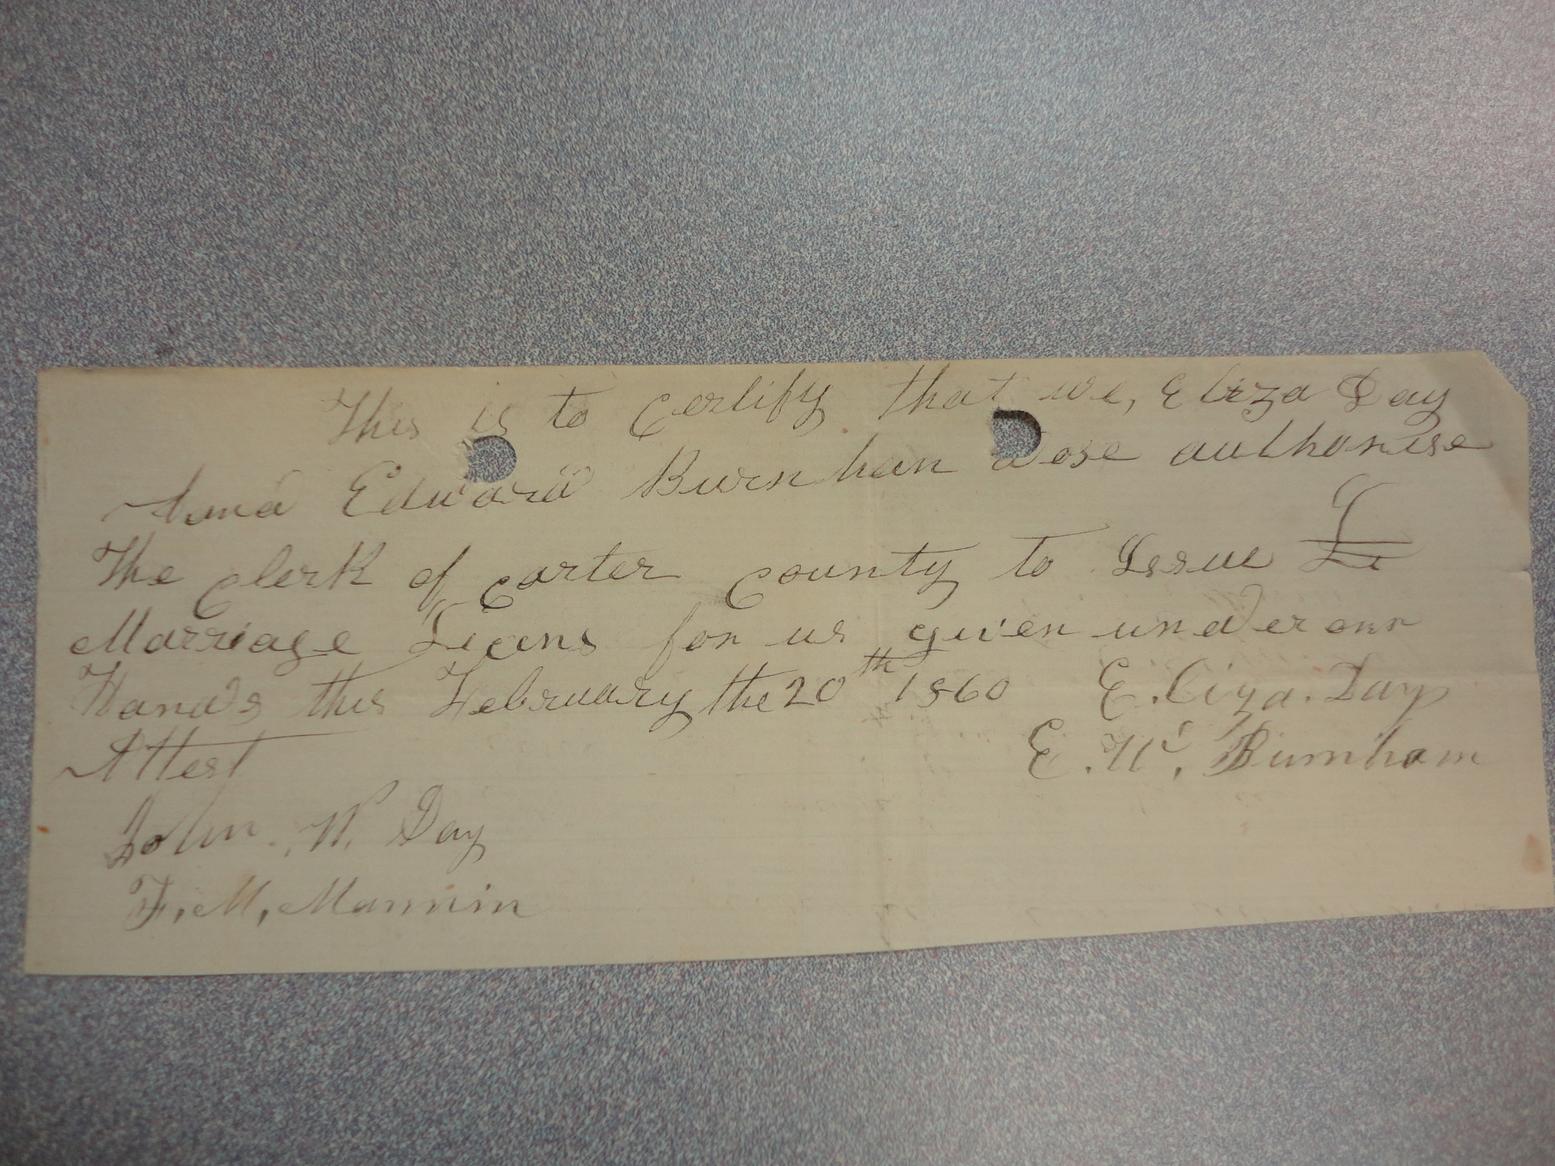 This is to certify that we, Eliza Day
And Edward Burnham dose authorise
The clerk of Carter county to Issue
Marriage Licens for us given under our
Hands this February the 20th 1860 E. Liza. Day
Attest E. W. Burnham
John. W. Day
F. M. Mannin